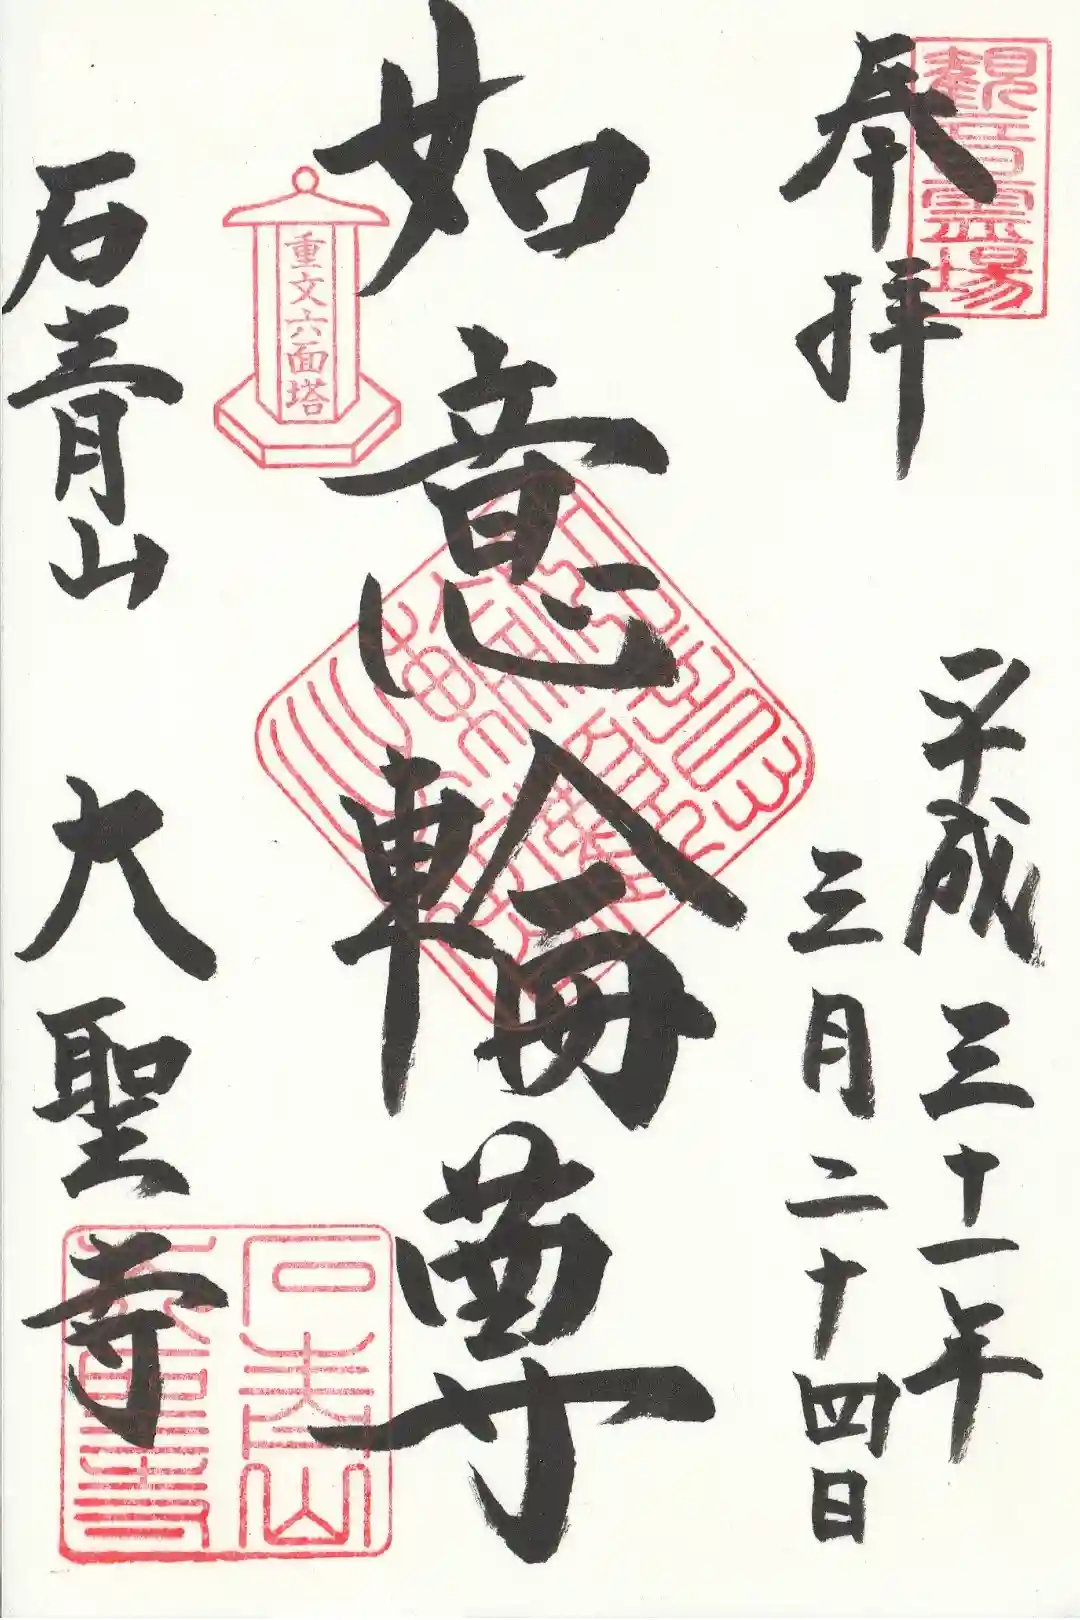 奉拝
平成三十一年
三月二十四日
如意輪尊
石青山 大聖寺
観音霊場
重文六面塔
石青山
大聖寺